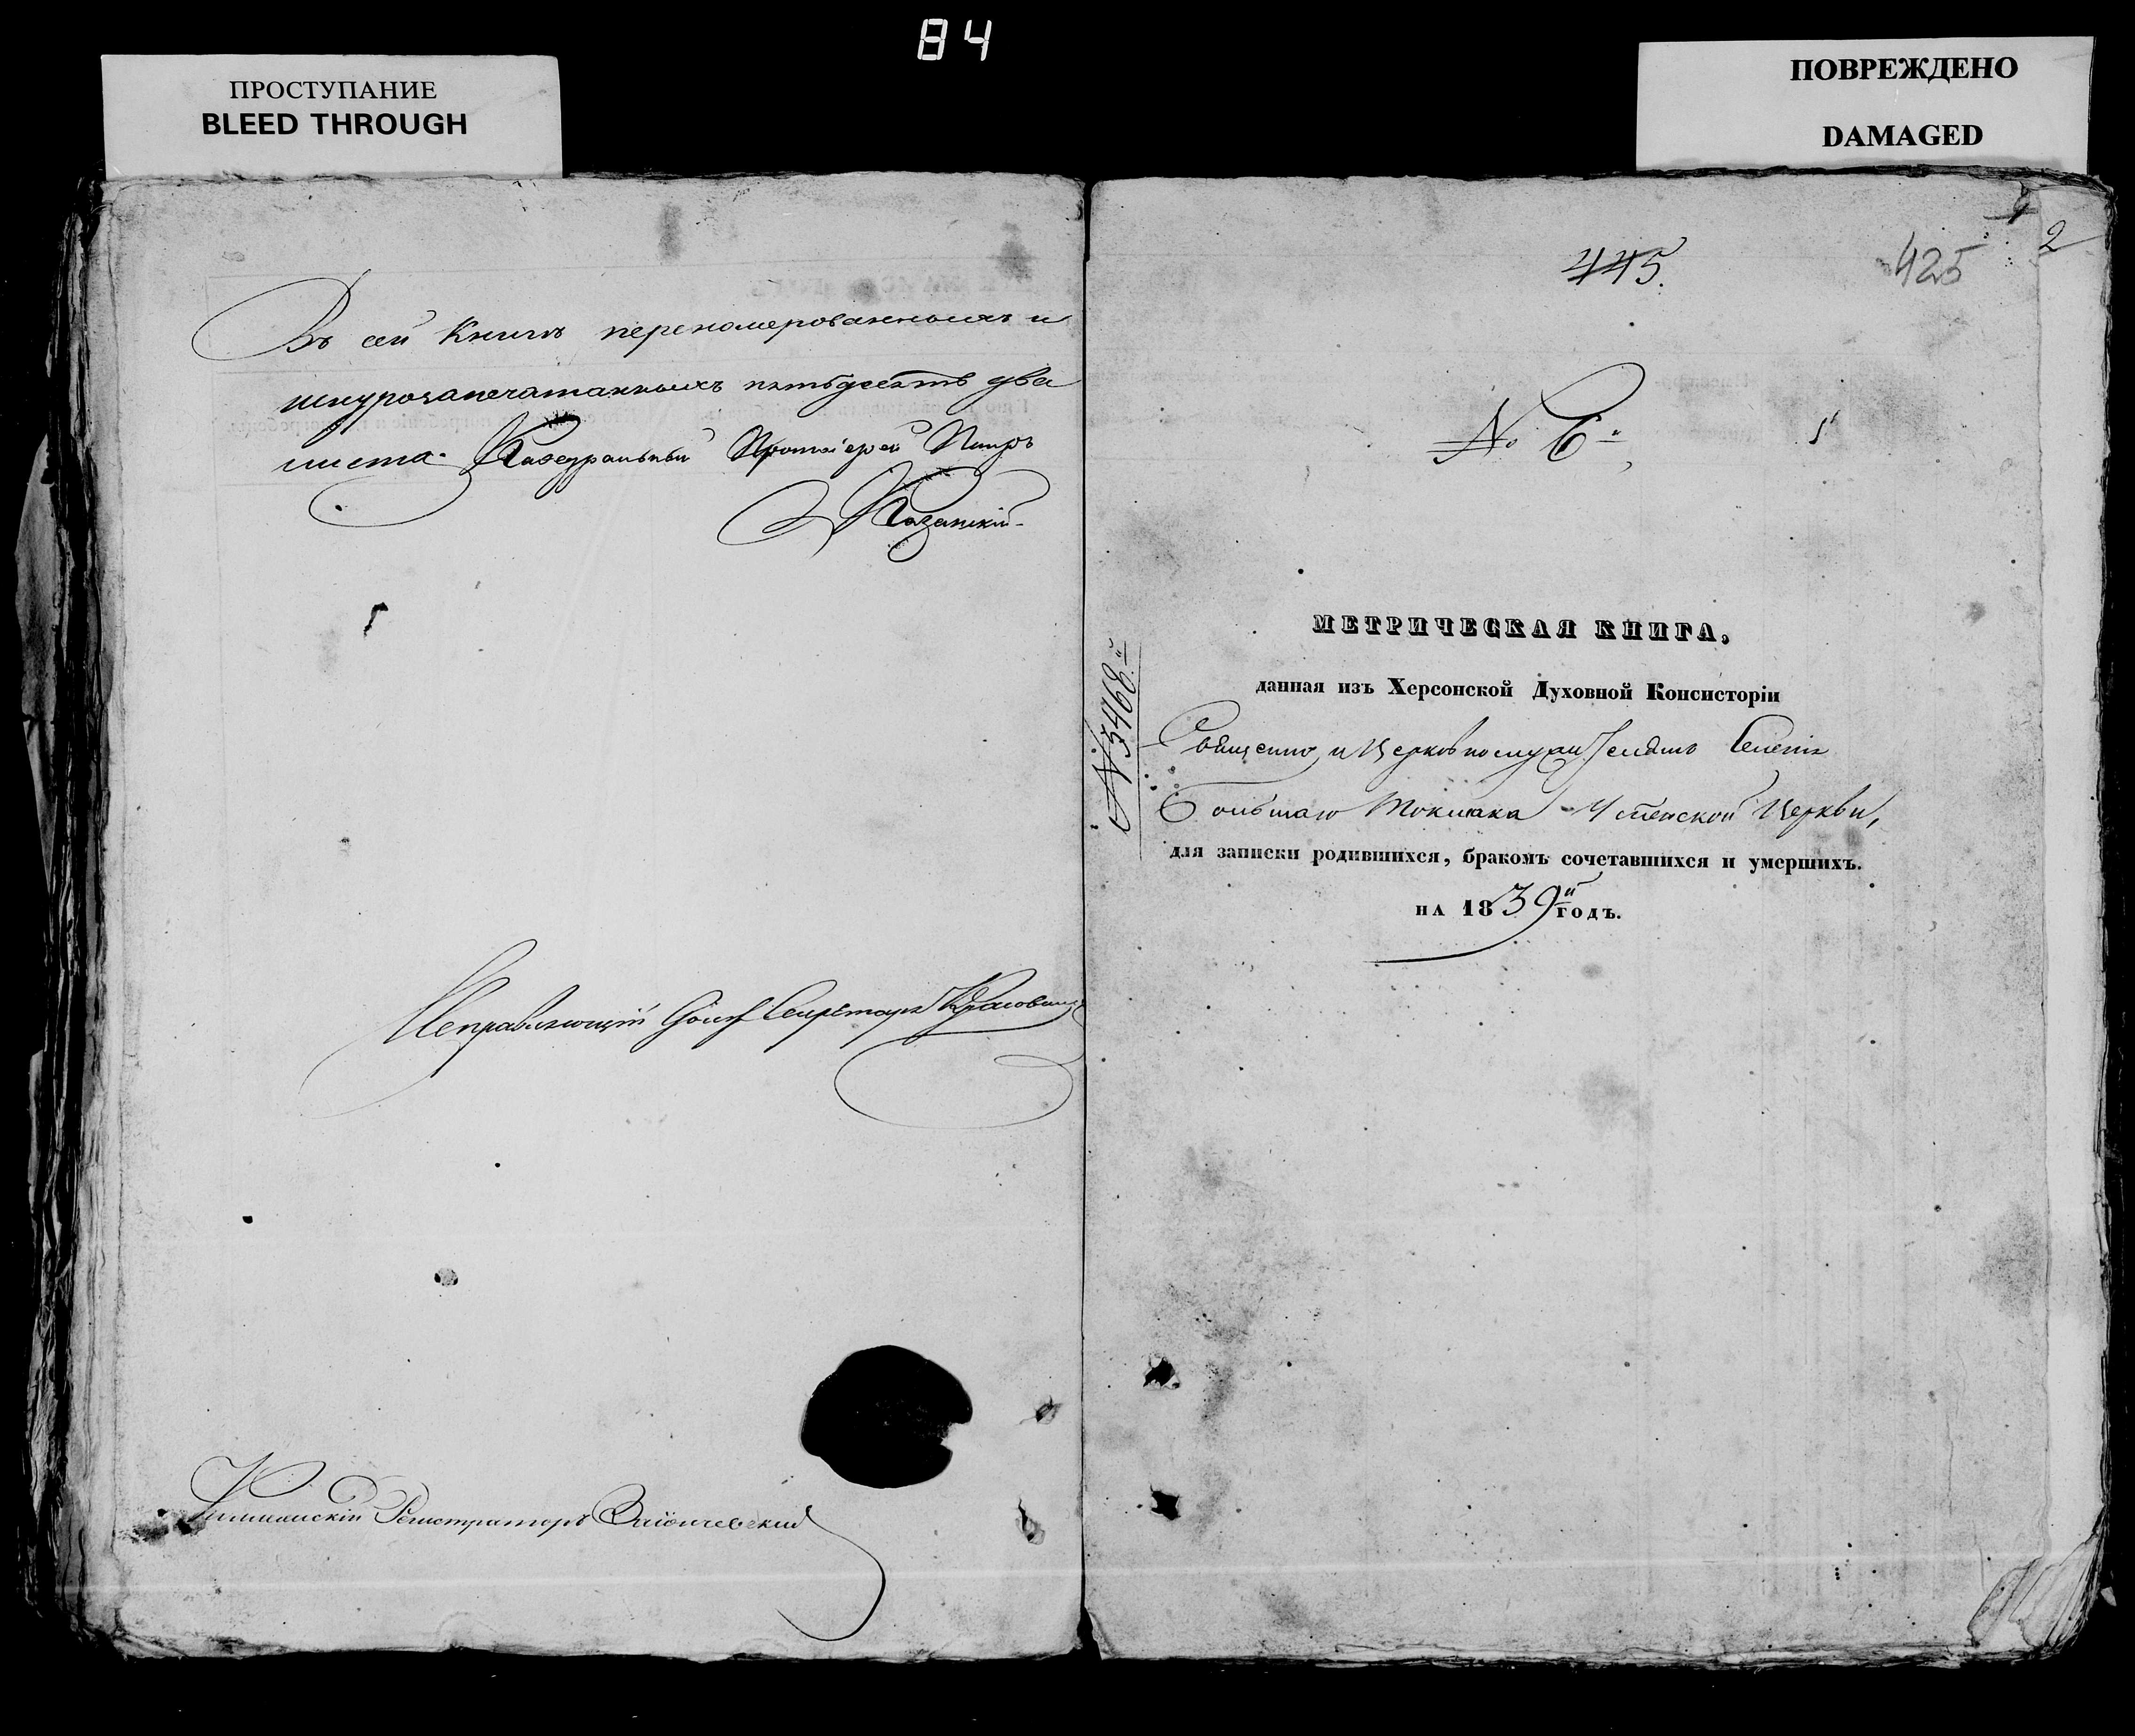 84
ПРОСТУПАНИЕ
BLEED THROUGH
ПОВРЕЖДЕНО
DAMAGED
Въ сей Книгѣ переномерованныхъ и
шнурозапечатанныхъ пятьдесятъ два
листа. Каѳедральный Протоіерей Петръ
Казанскій
Исправляющій долж Секретаря
Регистраторъ
2
445.
425
№ 6
№ 5468.й
МЕТРИЧЕСКАЯ КНИГА,
данная изъ Херсонской Духовной Консисторіи
Священно и Церковнослужителямъ Селенія
Большаго Токмака Успенской Церкви,
для записки родившихся, бракомъ сочетавшихся и умершихъ.
НА 1839й ГОДЪ.